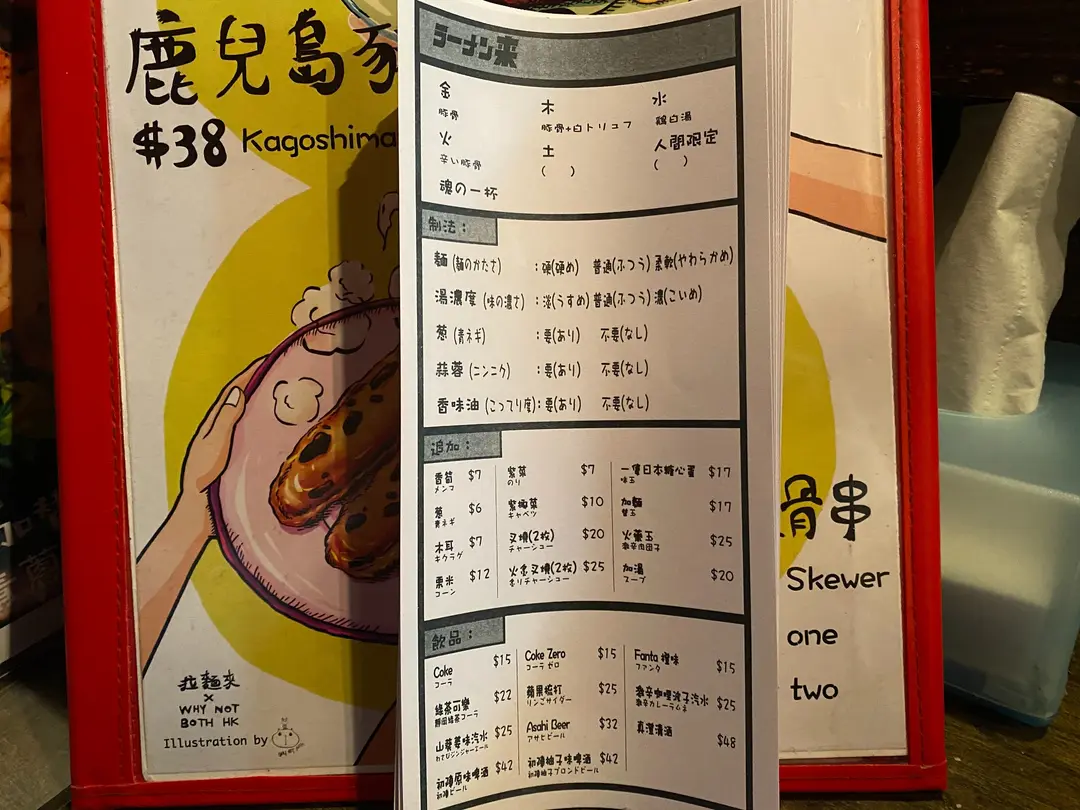 鹿兒島豚
$38 Kagoshima
骨串
Skewer
one
two
拉麵來
x
WHY NOT
BOTH HK
Illustration by
ラーメン来
金
豚骨
木
豚骨+白トリュフ
水
鶏白湯
火
辛い豚骨
土
( )
人間限定
( )
魂の一杯
制法：
麵 (麺のかたさ) ：硬(硬め) 普通(ふつう) 柔軟(やわらかめ)
湯濃度 (味の濃さ) ：淡(うすめ) 普通(ふつう) 濃(こいめ)
蔥 (青ネギ) ：要(あり) 不要(なし)
蒜蓉 (ニンニク) ：要(あり) 不要(なし)
香味油 (こってり度)：要(あり) 不要(なし)
追加：
香筍 $7
メンマ
蔥 $6
青ネギ
木耳 $7
キクラゲ
粟米 $12
コーン
紫菜 $7
のり
紫椰菜 $10
キャベツ
叉燒(2枚) $20
チャーシュー
火炙叉燒(2枚) $25
炙りチャーシュー
一隻日本糖心蛋 $17
味玉
加麵 $17
替玉
火薬玉 $25
激辛肉団子
加湯 $20
スープ
飲品：
Coke $15
コーラ
綠茶可樂 $22
静岡緑茶コーラ
山葵姜味汽水 $25
わさびジンジャーエール
初陣原味啤酒 $42
初陣ビール
Coke Zero $15
コーラ ゼロ
蘋果梳打 $25
りんごサイダー
Asahi Beer $32
アサヒビール
初陣柚子味啤酒 $42
初陣柚子ブロンドビール
Fanta 橙味 $15
ファンタ
激辛咖喱波子汽水 $25
激辛カレーラムネ
真澄清酒 $48